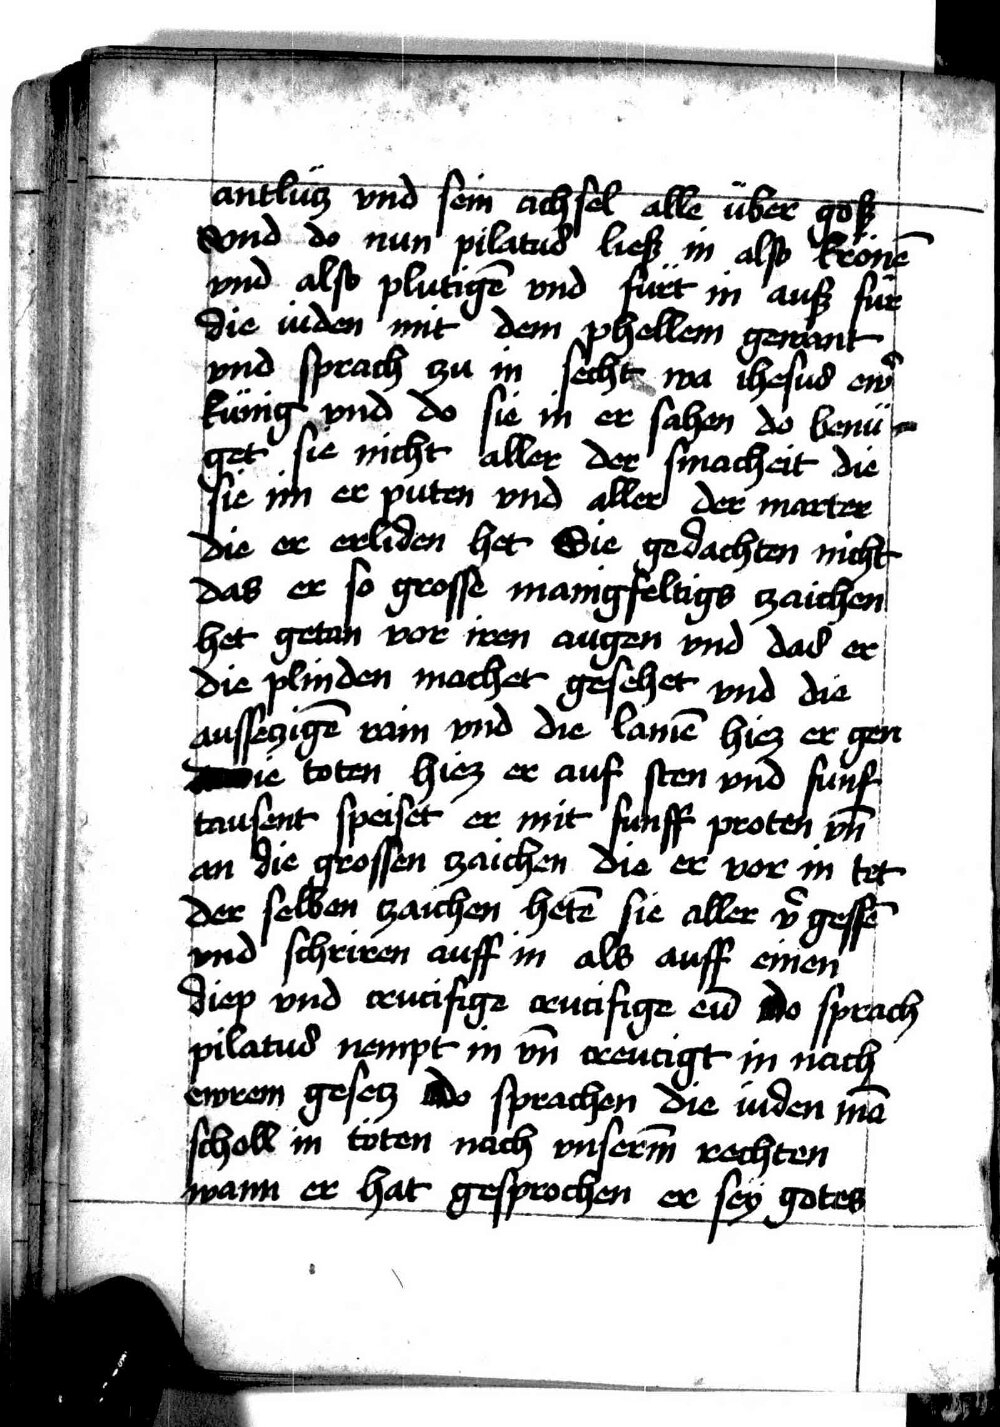 antlücz vnd sein achsel alle über goß
Vnd do nun pilatus ließ in also krönē
vnd also plutigē vnd fürt in auß für
die iuden mit dem phellem gewant
vnd sprach zu in secht wa ihesus ew̄
künig vnd do sie in er sahen do benü-
get sie nicht aller der smacheit die
sie im er puten vnd aller der marter
die er erliden het Sie gedachten nicht
das er so grosse manigfeltigs zaichen
het getan vor iren augen vnd das er
die plinden machet gesehet vnd die
aussetzigē rain vnd die lamē hiez er gen
die toten hiez er auf sten vnd funf
tausent speiset er mit funff proten vn̄
an die grossen zaichen die er vor in tet
der selben zaichen hetē sie aller v̄gessē
vnd schriren auff in als auff einen
diep vnd crucifige crucifige eū do sprach
pilatus nempt in vn̄ creucigt in nach
ewrem gesetz do sprachen die iuden mā
scholl in töten nach vnserm̄ rechten
wann er hat gesprochen er sey gotes